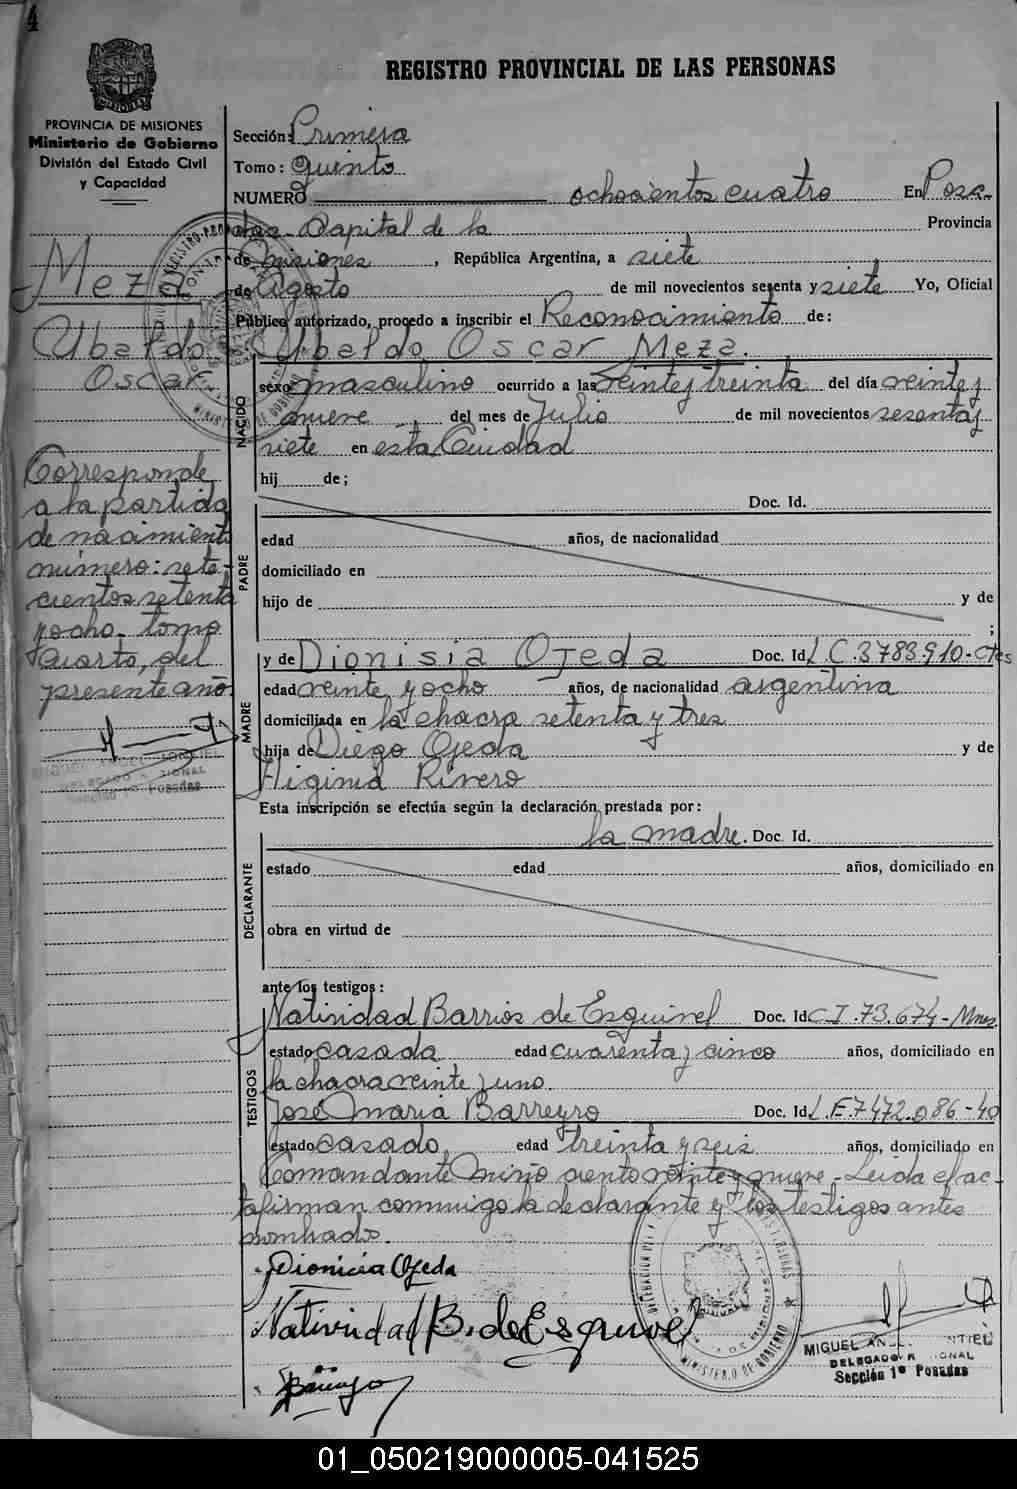 4
REGISTRO PROVINCIAL DE LAS PERSONAS
PROVINCIA DE MISIONES
Ministerio de Gobierno
División del Estado Civil
y Capacidad
Sección: Primera
Tomo: Quinto
NUMERO ochocientos cuatro En Posa-
das - Capital de la Provincia
de Misiones, República Argentina, a siete
de Agosto de mil novecientos sesenta y siete Yo, Oficial
Público autorizado, procedo a inscribir el Reconocimiento de:
Ubaldo Oscar Meza.
Meza
Ubaldo
Oscar
NACIDO
sexo masculino ocurrido a las veinte y treinta del día veinte y
nueve del mes de Julio de mil novecientos sesenta y
siete en esta Ciudad
hij de;
Corresponde
a la partida
de nacimiento
número: sete-
cientos setenta
y ocho tomo
Cuarto, del
presente año
MIGUEL
Posadas
PADRE
Doc. Id.
edad años, de nacionalidad
domiciliado en
hijo de y de
;
MADRE
y de Dionisia Ojeda Doc. Id. L C. 3783.910 - Ctes
edad veinte y ocho años, de nacionalidad argentina
domiciliada en la chacra setenta y tres
hija de Diego Ojeda y de
Higinia Rivero
Esta inscripción se efectúa según la declaración prestada por:
la madre. Doc. Id.
DECLARANTE
estado edad años, domiciliado en
obra en virtud de
ante los testigos:
TESTIGOS
Natividad Barrios de Esquivel Doc. Id. C I. 73.674 - Mnes.
estado casada edad cuarenta y cinco años, domiciliado en
la chacra veinte y uno.
José Maria Barreyro Doc. Id. L.E. 7472.086 - 40
estado casado edad treinta y seis años, domiciliado en
Comandante Miño ciento veinte y nueve - Leida el ac-
ta firman conmigo la declarante y los testigos antes
nombrados.
Dionicia Ojeda
Natividad B. de Esquivel
MINISTERIO DE GOBIERNO
MIGUEL
DELEGADO
Sección 1ª Posadas
01_050219000005-041525